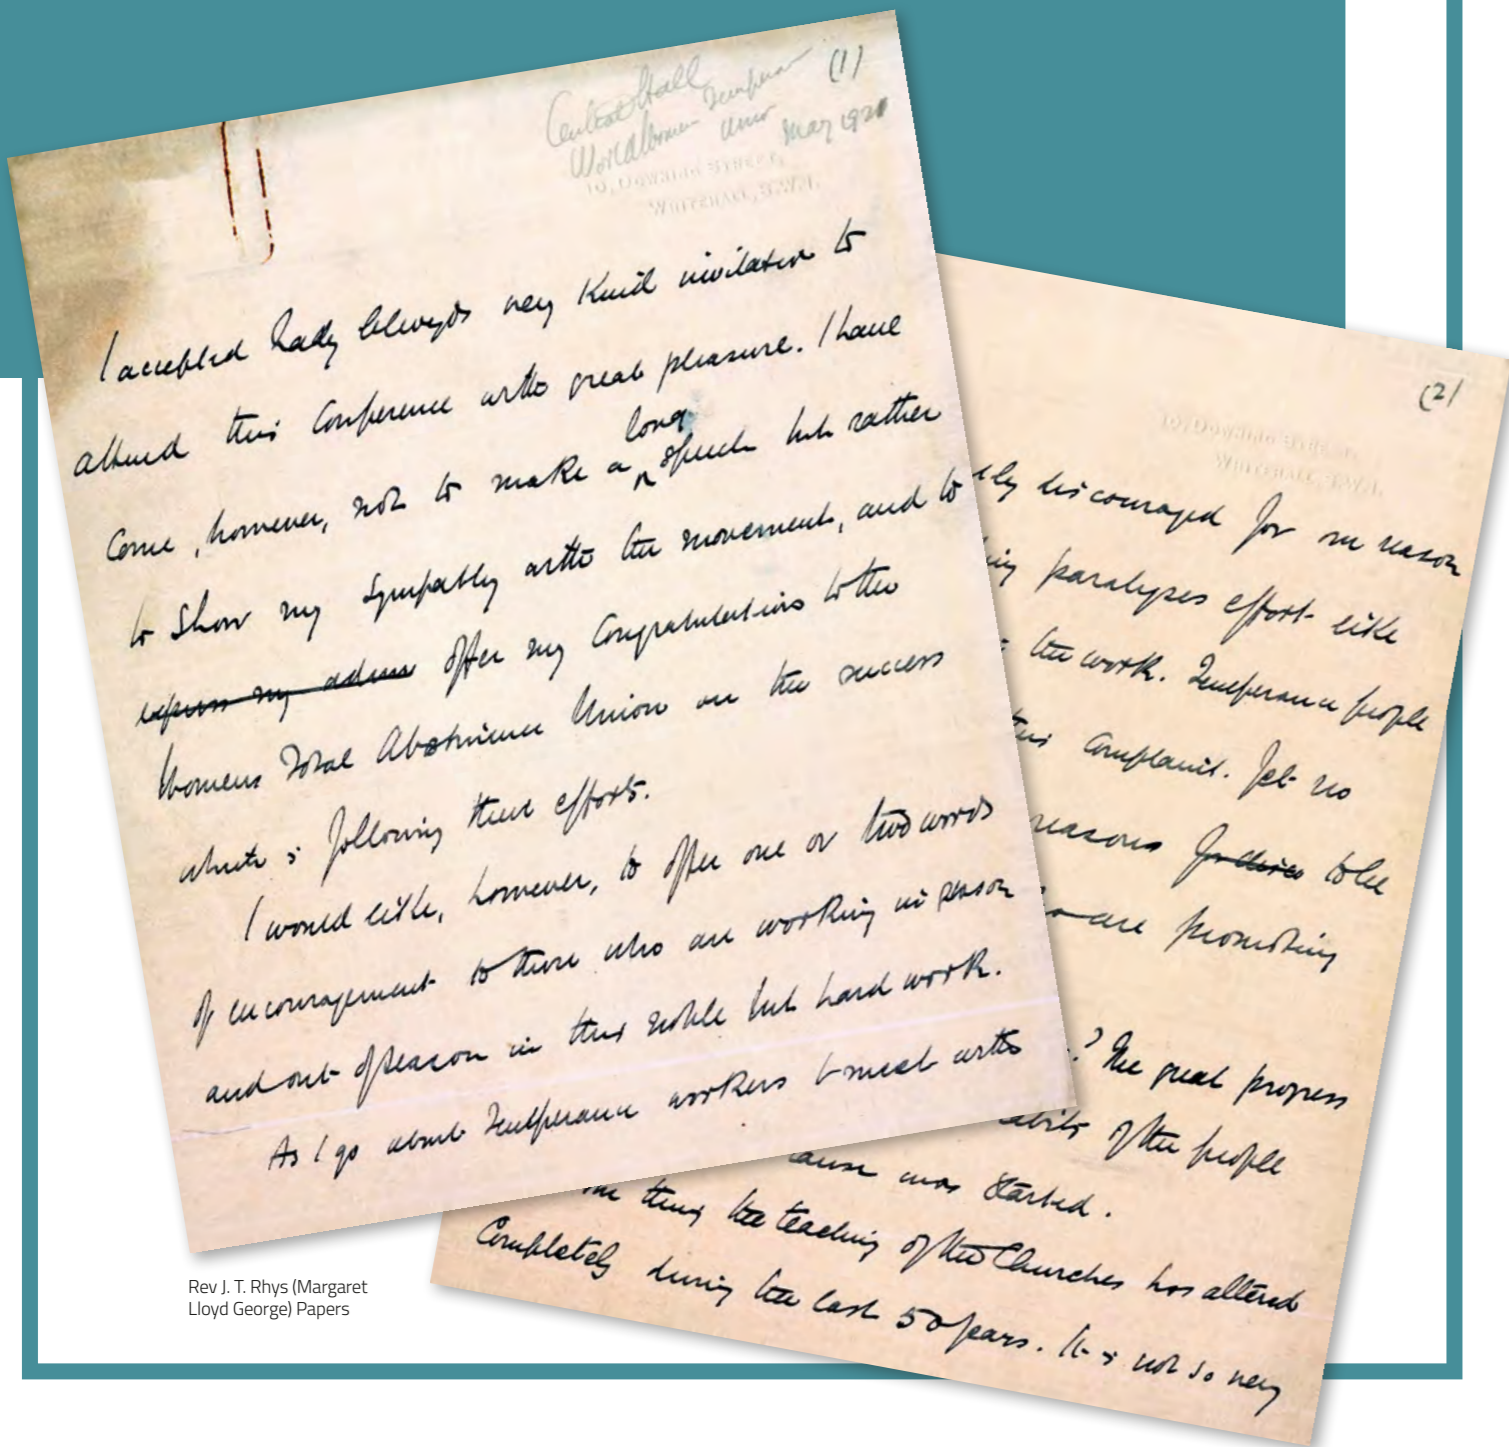 (1)
Central Hall
World Women Temperance
Union May 1920
10, Downing Street,
Whitehall, S.W.1.
I accepted Lady Clwyd's very kind invitation to
attend this Conference with great pleasure. I have
come, however, not to make a long speech but rather
to show my sympathy with the movement, and to
express my offer my congratulations to the
Womens Total Abstinence Union on the success
which is following their efforts.
I would like, however, to offer one or two words
of encouragement to those who are working in season
and out of season in this noble but hard work.
As I go about Temperance workers I meet with
(2)
10, Downing Street,
Whitehall, S.W.1.
discouraged for one reason
paralyses effort like
the work. Temperance people
this complaint. Yet no
reasons to be
are promoting
? The great progress
habits of the people
cause was started.
one thing the teaching of the Churches has altered
completely during the last 50 years. It is not so very
Rev J. T. Rhys (Margaret
Lloyd George) Papers